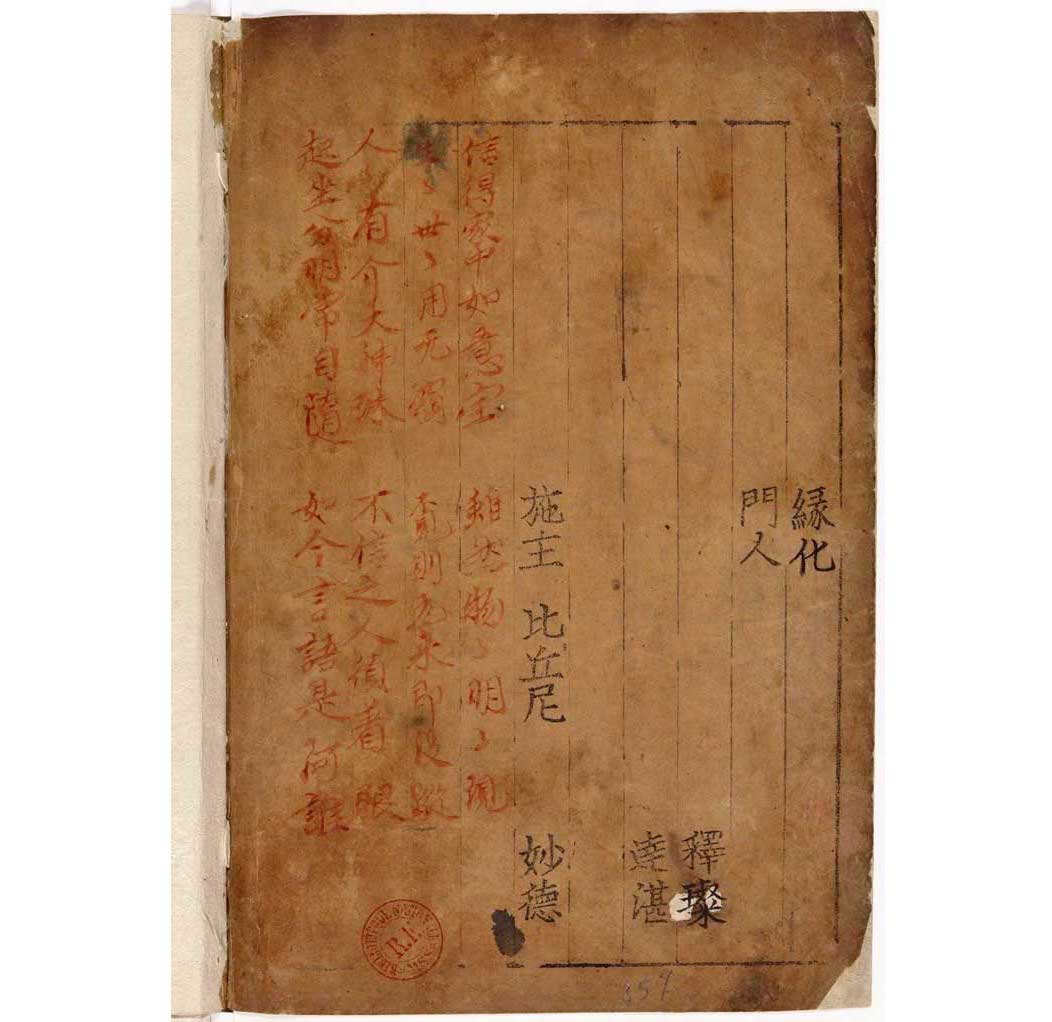 緣化
門人
釋璨
達湛
施主 比丘尼 妙德
信得家中如意宝 雖然物ヽ明ヽ現
生ヽ世ヽ用无窮 覓則元来即没蹤
人ヽ有介大神珠 不信之人須着眼
起坐分明常自隨 如今言語是阿誰
R.F.